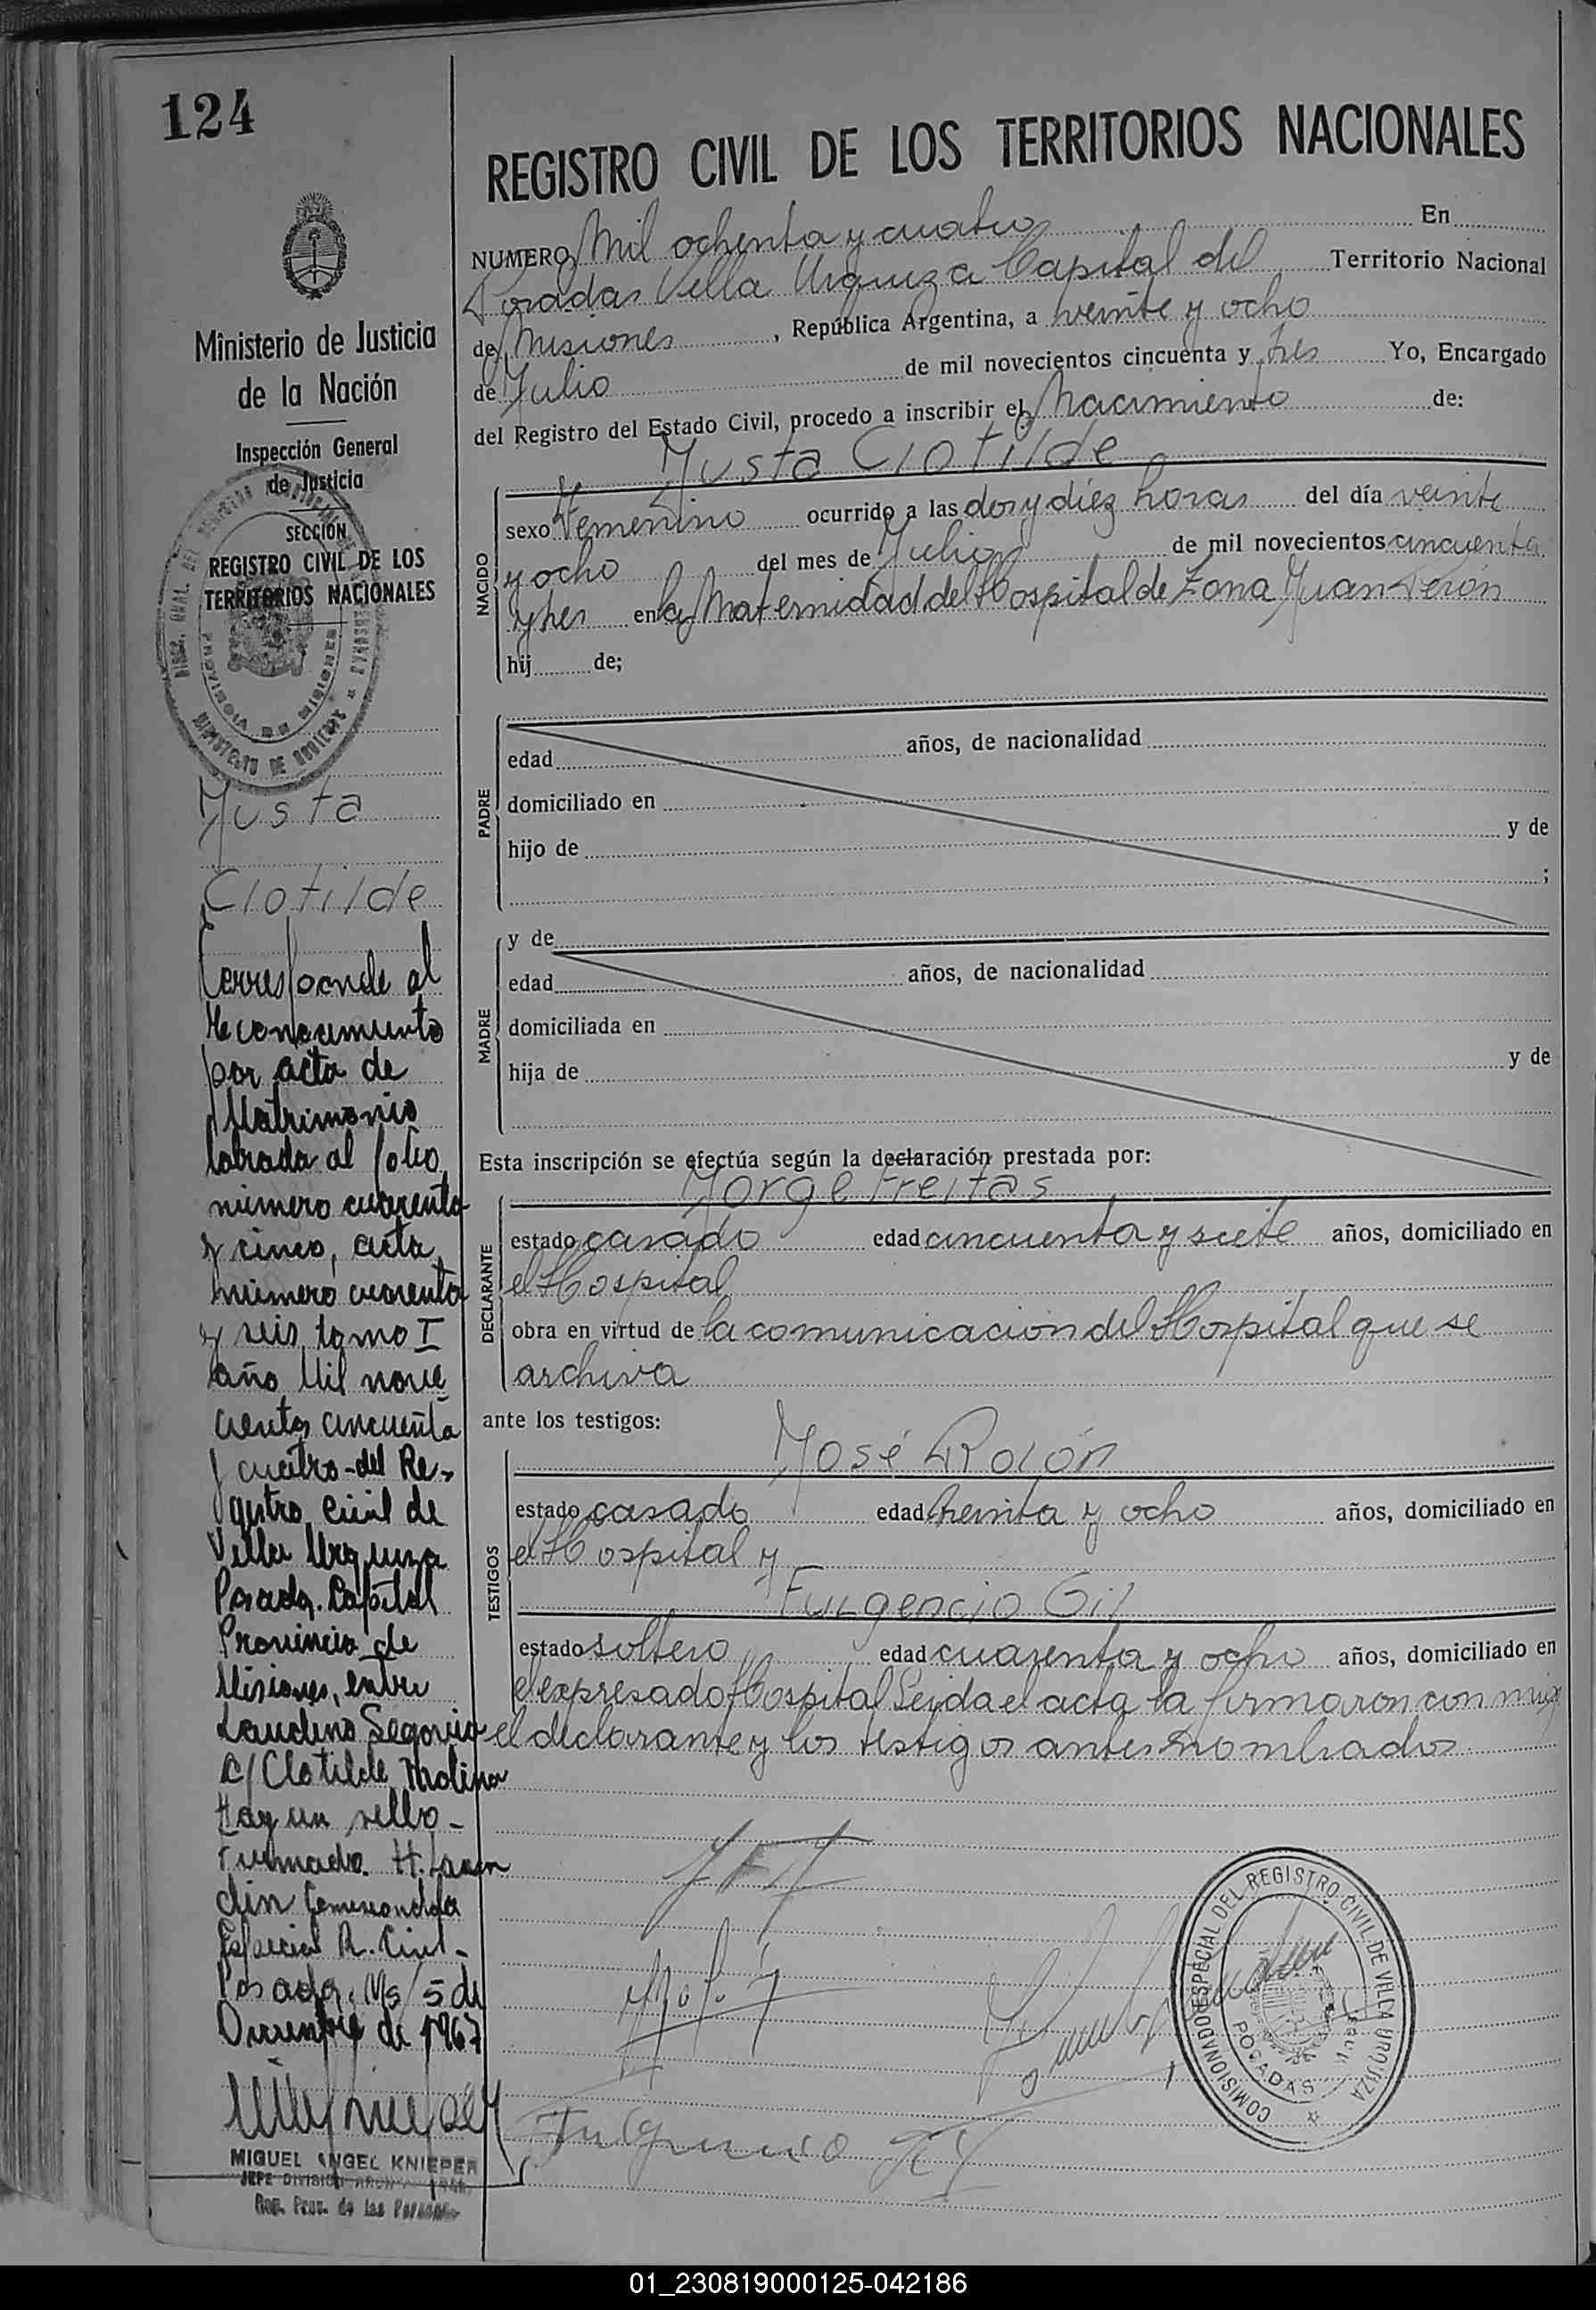 124
Ministerio de Justicia
de la Nación
Inspección General
de Justicia
SECCION
REGISTRO CIVIL DE LOS
TERRITORIOS NACIONALES
PROVINCIA DE MISIONES
Justa
Clotilde
Corresponde al
Reconocimiento
por acta de
Matrimonio
labrada al folio
número cuarenta
y cinco, acta
número cuarenta
y seis, tomo I
año Mil nove
cientos cincuenta
y cuatro-del Re-
gistro Civil de
Villa Urquiza
Posadas. Capital
Provincia de
Misiones, entre
Laudino Segovia
c/ Clotilde Molina
Hay un sello-
Firmado. H.
Comisionada
Especial R. Civil-
Posadas, Ms/ 5 de
Diciembre de 1967
MIGUEL ANGEL KNIEPER
JEFE DIVISION
Reg. Prov. de las Personas
REGISTRO CIVIL DE LOS TERRITORIOS NACIONALES
NUMERO Mil ochenta y cuatro En
Posadas Villa Urquiza Capital del Territorio Nacional
de Misiones, República Argentina, a veinte y ocho
de Julio de mil novecientos cincuenta y tres Yo, Encargado
del Registro del Estado Civil, procedo a inscribir el Nacimiento de:
Justa Clotilde
NACIDO
sexo Femenino ocurrido a las dos y diez horas del día veinte
y ocho del mes de Julio de mil novecientos cincuenta
y tres en la Maternidad del Hospital de Zona Juan Perón
hij de;
PADRE
edad años, de nacionalidad
domiciliado en
hijo de y de
;
MADRE
y de
edad años, de nacionalidad
domiciliada en
hija de y de
Esta inscripción se efectúa según la declaración prestada por:
Jorge Freitas
DECLARANTE
estado casado edad cincuenta y siete años, domiciliado en
el Hospital
obra en virtud de la comunicación del Hospital que se
archiva
ante los testigos:
José Rolón
TESTIGOS
estado casado edad treinta y ocho años, domiciliado en
el Hospital y
Fulgencio Gil
estado soltero edad cuarenta y ocho años, domiciliado en
el expresado Hospital Leida el acta la firmaron conmigo
el declarante y los testigos antes nombrados
Fulgencio Gil
COMISIONADO ESPECIAL DEL REGISTRO CIVIL DE VILLA URQUIZA
POSADAS
01_230819000125-042186